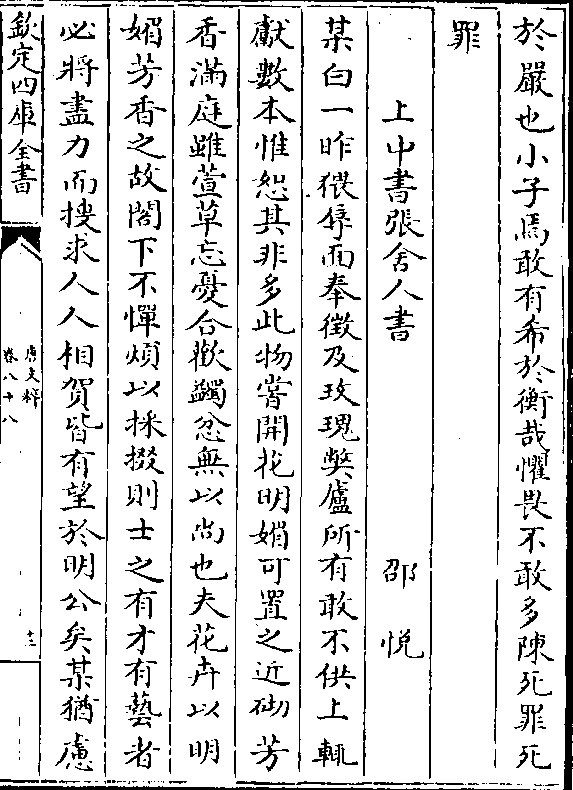 於嚴也小子焉敢有希於衡哉懼畏不敢多陳死罪死
罪
上中書張舍人書 邵悅
某白一昨猥辱面奉徵及玫瑰弊廬所有敢不供上輒
獻數本惟恕其非多此物嘗開花明媚可置之近砌芳
香滿庭雖萱草忘憂合歡蠲忿無以尚也夫花卉以明
媚芳香之故閣下不憚煩以採掇則士之有才有藝者
必將盡力而搜求人人相賀皆有望於明公矣某猶慮
欽定四庫全書
唐文粹
卷八十八
十三